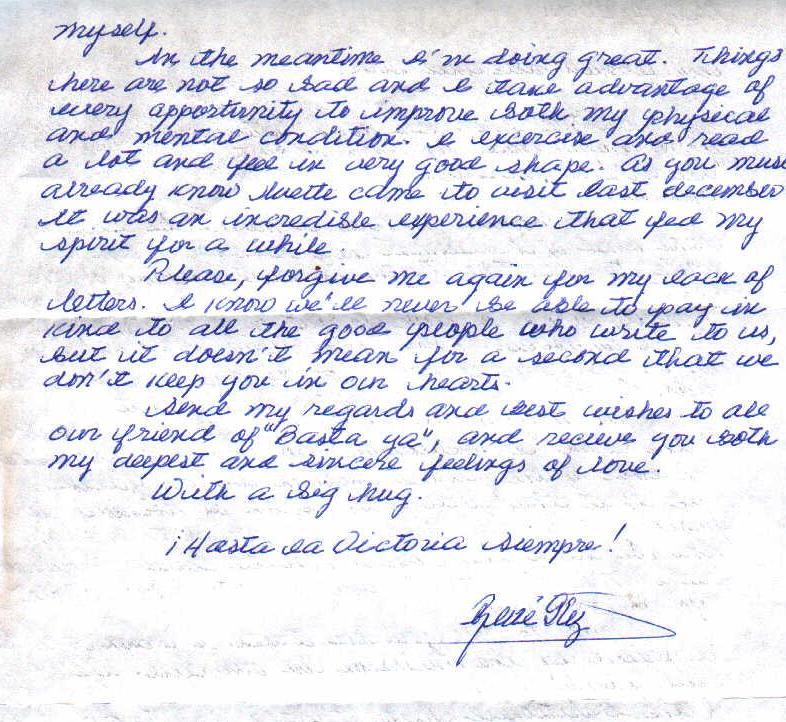 myself.
In the meantime I'm doing great. Things
here are not so bad and I take advantage of
every opportunity to improve both my physical
and mental condition. I excercise and read
a lot and feel in very good shape. As you must
already know Ivette came to visit last december
It was an incredible experience that fed my
spirit for a while.
Please, forgive me again for my lack of
letters. I know we'll never be able to pay in
kind to all the good people who write to us,
but it doesn't mean for a second that we
don't keep you in our hearts.
Send my regards and best wishes to all
our friend of "Basta ya", and receive you both
my deepest and sincere feelings of love.
With a big hug.
¡Hasta la Victoria Siempre!
René Glez